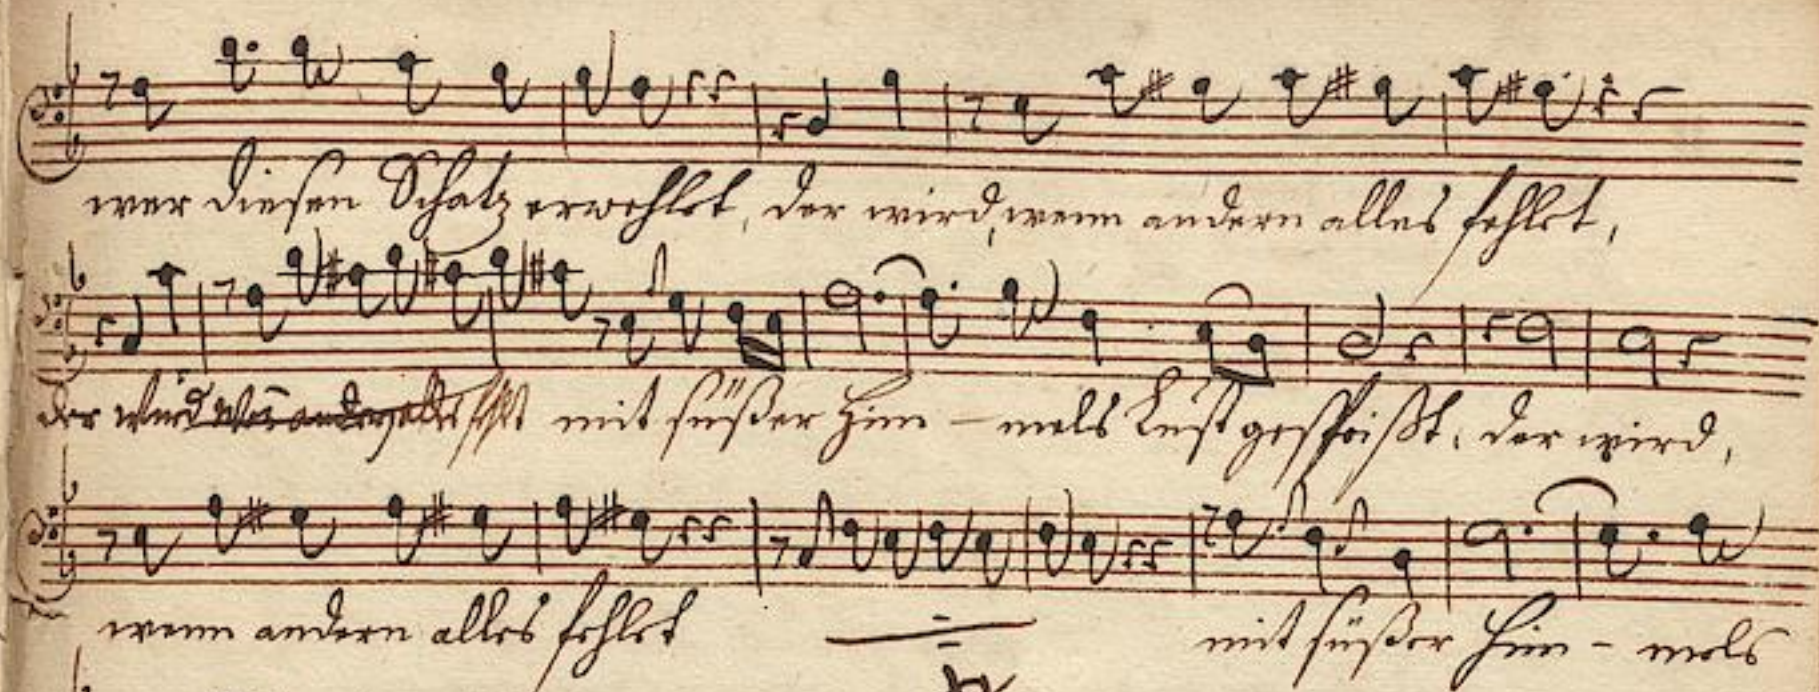 wer diesen Schatz erwehlet, der wird, wenn andern alles fehlet,
der wird wen̄ andern alles fehlt mit süßer Him - mels Lust gespeißt, der wird,
wenn andern alles fehlet mit süßer Him - mels